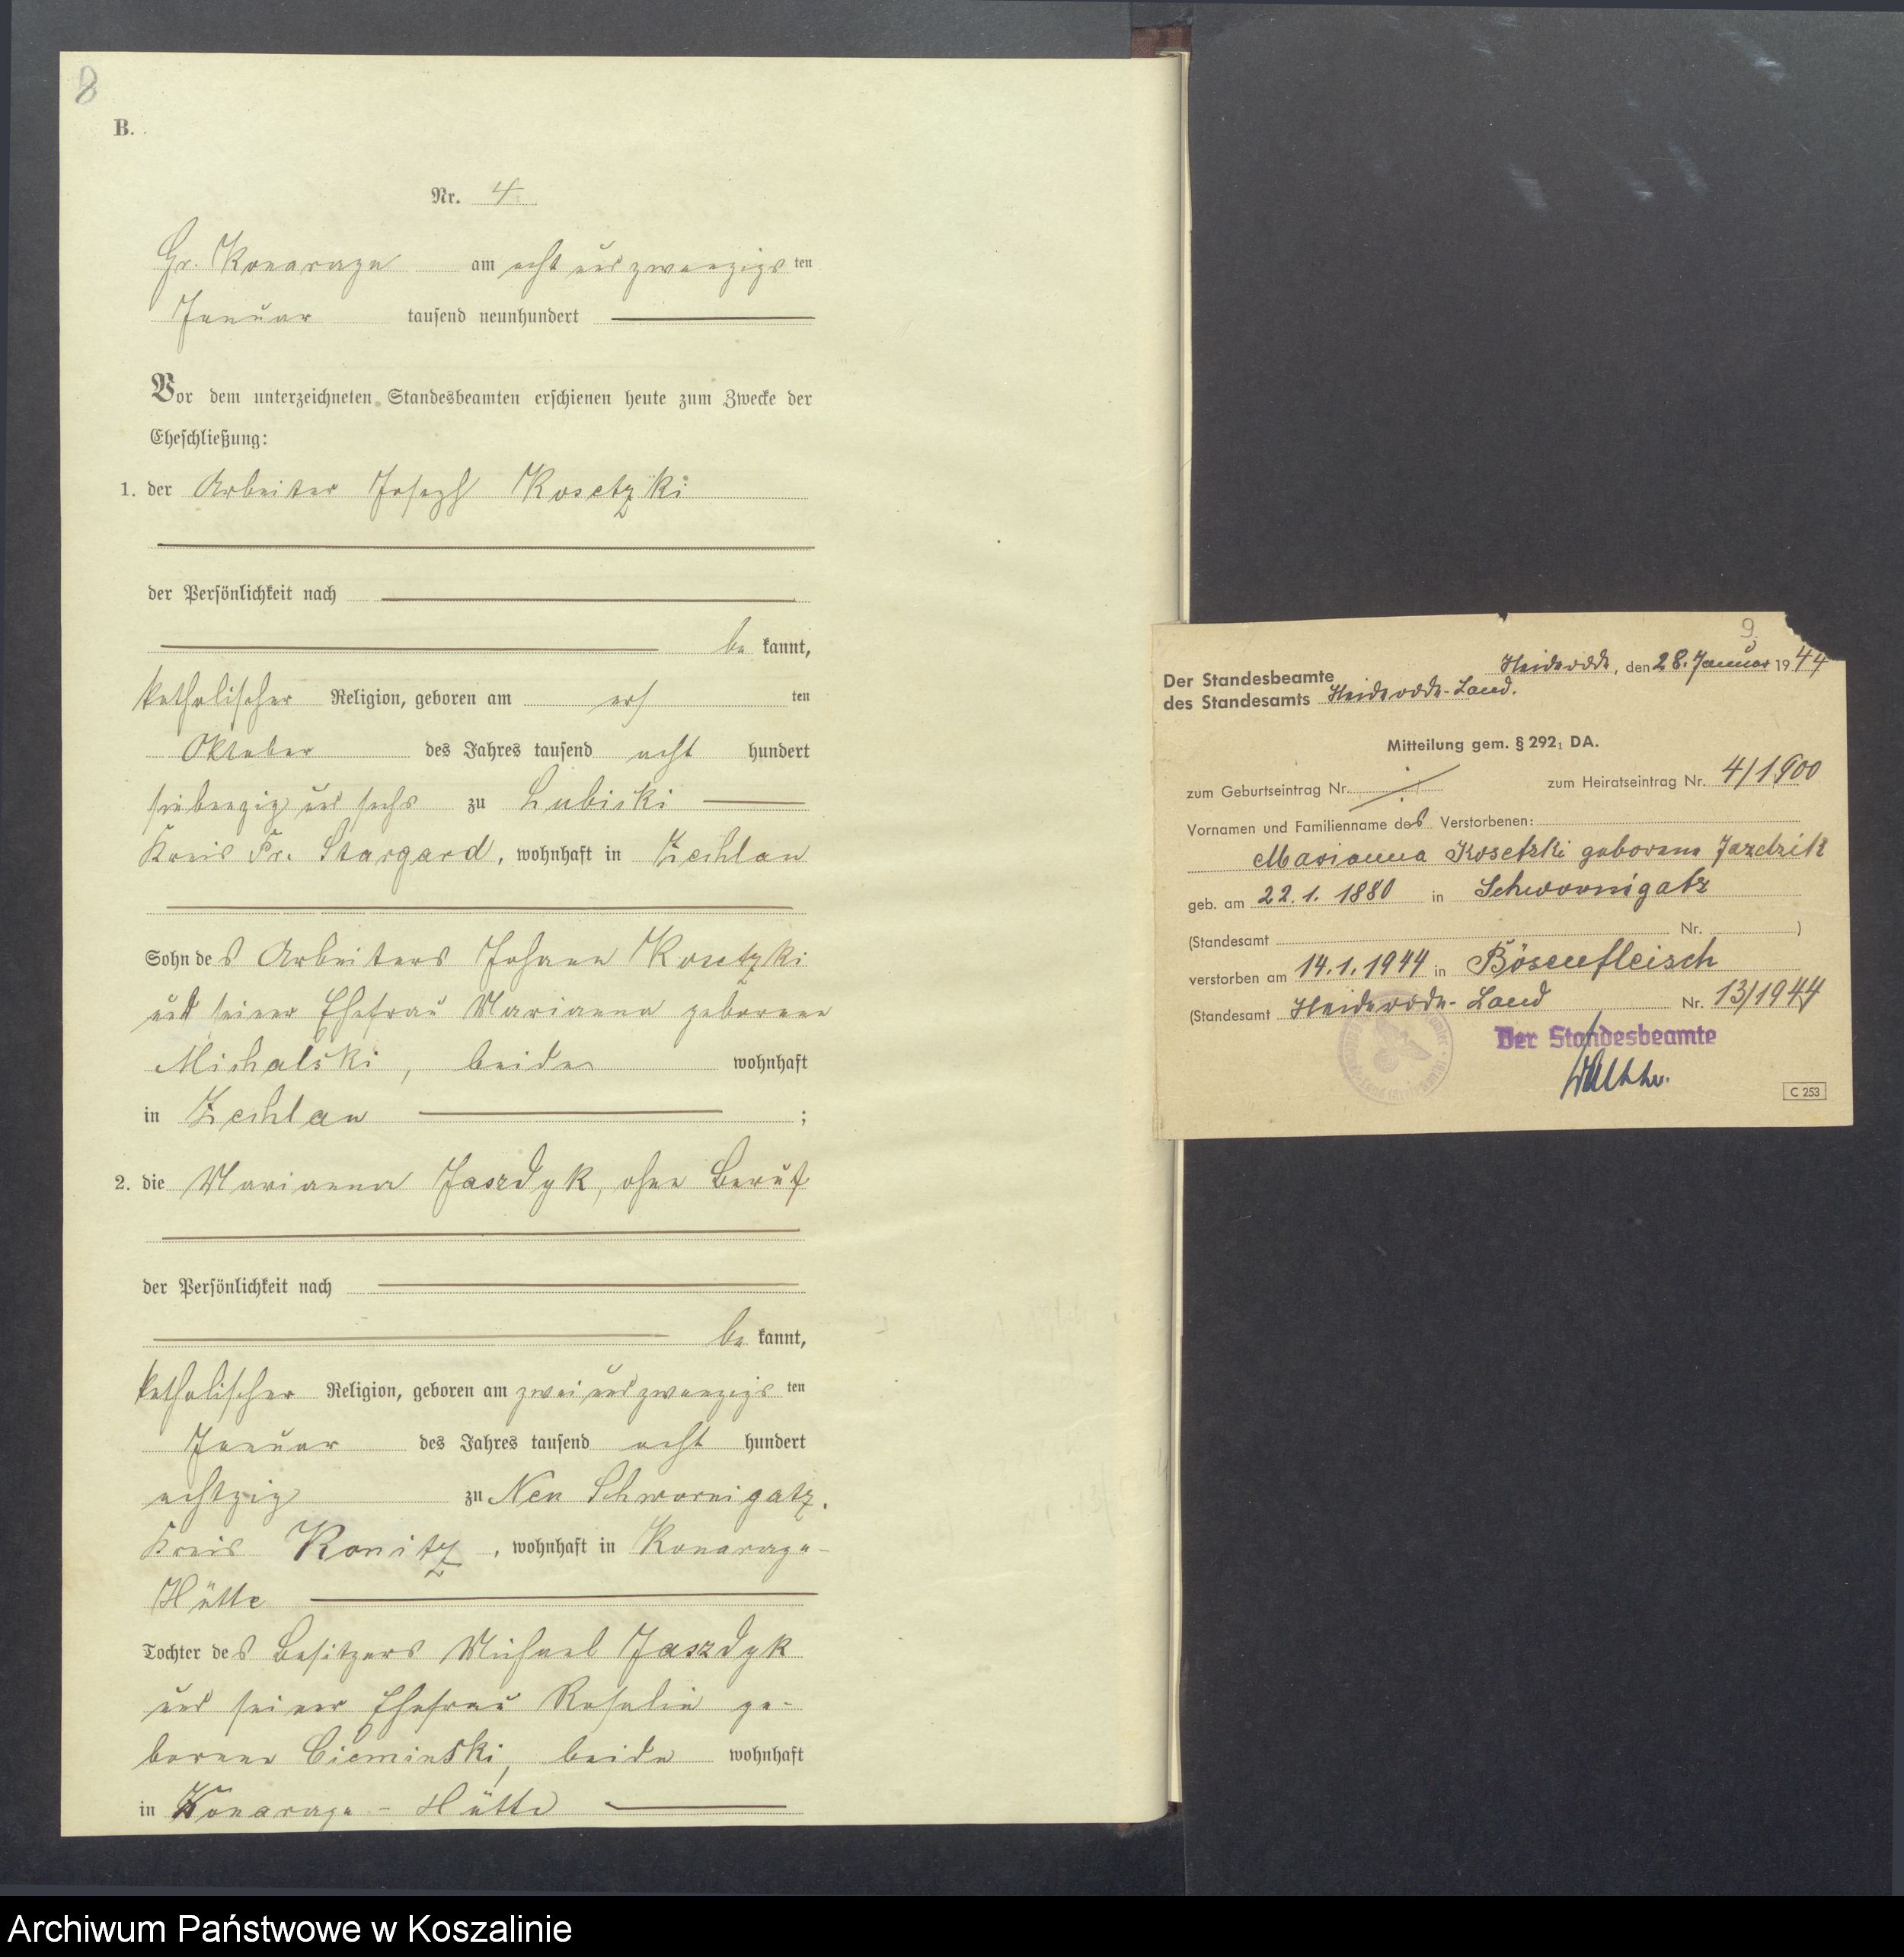 8
B.
Nr. 4
Gr. Konarczyn am acht und zwanzigsten
Januar tausend neunhundert
Vor dem unterzeichneten Standesbeamten erschienen heute zum Zwecke der
Eheschließung:
1. der Arbeiter Joseph Kosetzki
der Persönlichkeit nach
be kannt,
katholischer Religion, geboren am ersten
Oktober des Jahres tausend acht hundert
siebenzig und sechs zu Lubiski
Kreis Pr. Stargard, wohnhaft in Zechlau
Sohn des Arbeiters Johann Kosetzki
und seiner Ehefrau Marianna geborene
Michalski, beide wohnhaft
in Zechlau ;
2. die Marianna Jaszdyk, ohne Beruf
der Persönlichkeit nach
be kannt,
katholischer Religion, geboren am zwei und zwanzigsten
Januar des Jahres tausend acht hundert
achtzig zu Neu Schwornigatz.
Kreis Konitz, wohnhaft in
Hütte
Tochter des Besitzers Michael Jaszdyk
und seiner Ehefrau Rosalie ge-
borene Cieminski, beide wohnhaft
in Hütte
9.
Heiderode, den 28. Januar 1944
Der Standesbeamte
des Standesamts Heiderode-Land.
Mitteilung gem. § 292, DA.
zum Geburtseintrag Nr. zum Heiratseintrag Nr. 4/1900
Vornamen und Familienname des Verstorbenen:
Marianna Kosetzki geborene Jazdzik
geb. am 22.1.1880 in Schwornigatz
(Standesamt Nr. )
verstorben am 14.1.1944 in Bösenfleisch
(Standesamt Heiderode-Land Nr. 13/1944
Der Standesbeamte
C 253
Archiwum Państwowe w Koszalinie